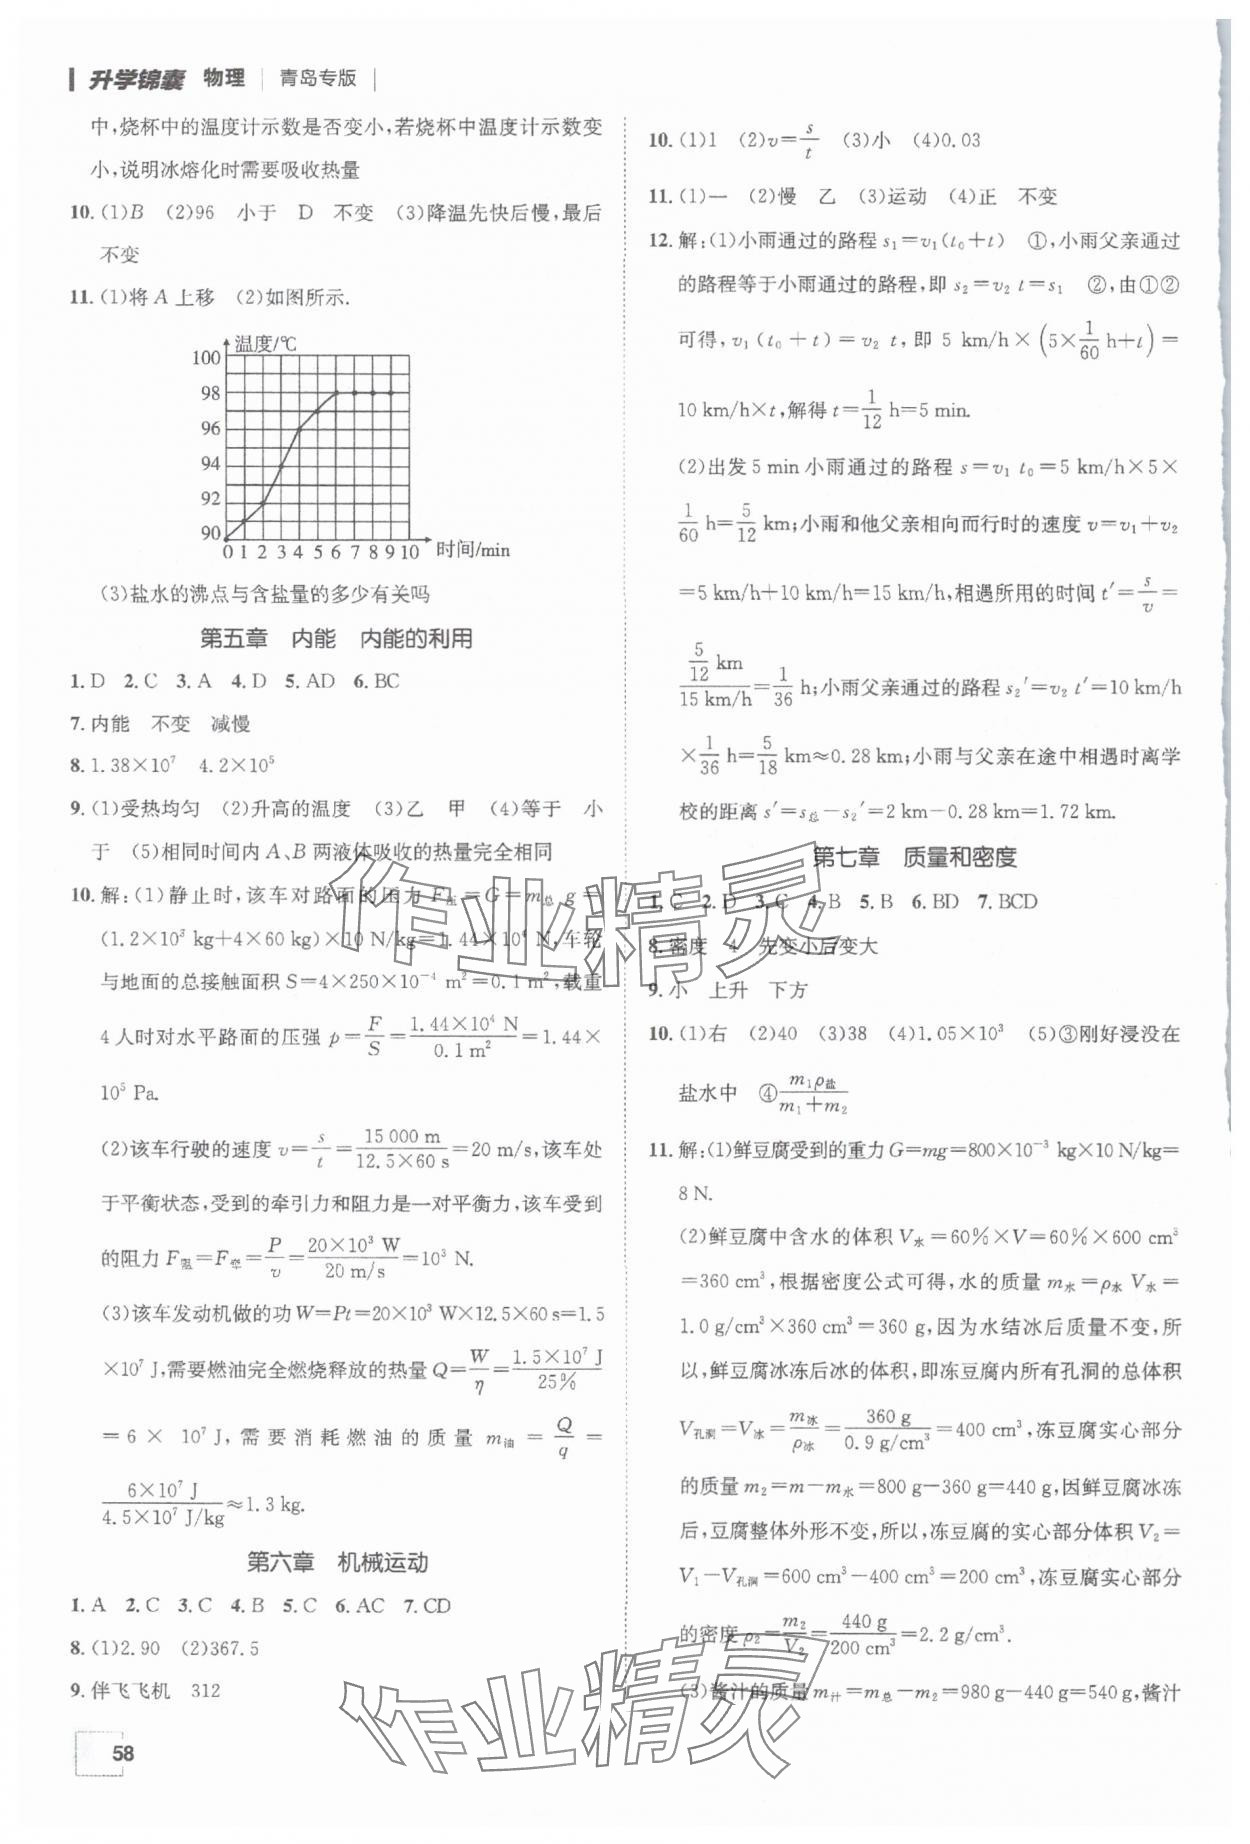 升学锦囊 物理 | 青岛专版 |
中,烧杯中的温度计示数是否变小,若烧杯中温度计示数变
小,说明冰熔化时需要吸收热量
10. (1)B (2)96 小于 D 不变 (3)降温先快后慢,最后
不变
11. (1)将 A 上移 (2)如图所示.
温度/℃
100
98
96
94
92
90
0 1 2 3 4 5 6 7 8 9 10 时间/min
(3)盐水的沸点与含盐量的多少有关吗
第五章 内能 内能的利用
1. D 2. C 3. A 4. D 5. AD 6. BC
7. 内能 不变 减慢
8. 1.38×10⁷ 4.2×10⁵
9. (1)受热均匀 (2)升高的温度 (3)乙 甲 (4)等于 小
于 (5)相同时间内 A、B 两液体吸收的热量完全相同
10. 解:(1)静止时,该车对路面的压力 F压=G=m总 g=
(1.2×10³ kg+4×60 kg)×10 N/kg=1.44×10⁴ N,车轮
与地面的总接触面积 S=4×250×10⁻⁴ m²=0.1 m²,载重
4 人时对水平路面的压强 p=F/S=1.44×10⁴ N/0.1 m²=1.44×
10⁵ Pa.
(2)该车行驶的速度 v=s/t=15 000 m/12.5×60 s=20 m/s,该车处
于平衡状态,受到的牵引力和阻力是一对平衡力,该车受到
的阻力 F阻=F牵=P/v=20×10³ W/20 m/s=10³ N.
(3)该车发动机做的功 W=Pt=20×10³ W×12.5×60 s=1.5
×10⁷ J,需要燃油完全燃烧释放的热量 Q=W/η=1.5×10⁷ J/25%
=6×10⁷ J,需要消耗燃油的质量 m油=Q/q=
6×10⁷ J/4.5×10⁷ J/kg≈1.3 kg.
第六章 机械运动
1. A 2. C 3. C 4. B 5. C 6. AC 7. CD
8. (1)2.90 (2)367.5
9. 伴飞飞机 312
58
10. (1)1 (2)v=s/t (3)小 (4)0.03
11. (1)一 (2)慢 乙 (3)运动 (4)正 不变
12. 解:(1)小雨通过的路程 s₁=v₁(t₀+t) ①,小雨父亲通过
的路程等于小雨通过的路程,即 s₂=v₂ t=s₁ ②,由①②
可得,v₁(t₀+t)=v₂ t,即 5 km/h×(5×1/60 h+t)=
10 km/h×t,解得 t=1/12 h=5 min.
(2)出发 5 min 小雨通过的路程 s=v₁ t₀=5 km/h×5×
1/60 h=5/12 km;小雨和他父亲相向而行时的速度 v=v₁+v₂
=5 km/h+10 km/h=15 km/h,相遇所用的时间 t′=s/v=
5/12 km/15 km/h=1/36 h;小雨父亲通过的路程 s₂′=v₂ t′=10 km/h
×1/36 h=5/18 km≈0.28 km;小雨与父亲在途中相遇时离学
校的距离 s′=s总-s₂′=2 km-0.28 km=1.72 km.
第七章 质量和密度
1. C 2. D 3. C 4. B 5. B 6. BD 7. BCD
8. 密度 4 先变小后变大
9. 小 上升 下方
10. (1)右 (2)40 (3)38 (4)1.05×10³ (5)③刚好浸没在
盐水中 ④m₁ρ盐/m₁+m₂
11. 解:(1)鲜豆腐受到的重力 G=mg=800×10⁻³ kg×10 N/kg=
8 N.
(2)鲜豆腐中含水的体积 V水=60%×V=60%×600 cm³
=360 cm³,根据密度公式可得,水的质量 m水=ρ水 V水=
1.0 g/cm³×360 cm³=360 g,因为水结冰后质量不变,所
以,鲜豆腐冰冻后冰的体积,即冻豆腐内所有孔洞的总体积
V孔洞=V冰=m冰/ρ冰=360 g/0.9 g/cm³=400 cm³,冻豆腐实心部分
的质量 m₂=m-m水=800 g-360 g=440 g,因鲜豆腐冰冻
后,豆腐整体外形不变,所以,冻豆腐的实心部分体积 V₂=
V₁-V孔洞=600 cm³-400 cm³=200 cm³,冻豆腐实心部分
的密度 ρ₂=m₂/V₂=440 g/200 cm³=2.2 g/cm³.
(3)酱汁的质量 m汁=m总-m₂=980 g-440 g=540 g,酱汁
作业精灵
作业精灵